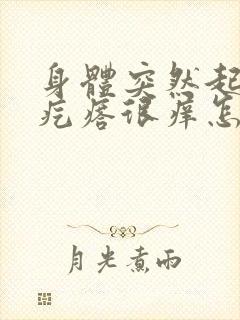 身體突然起
疙瘩很痒怎
月光煮雨